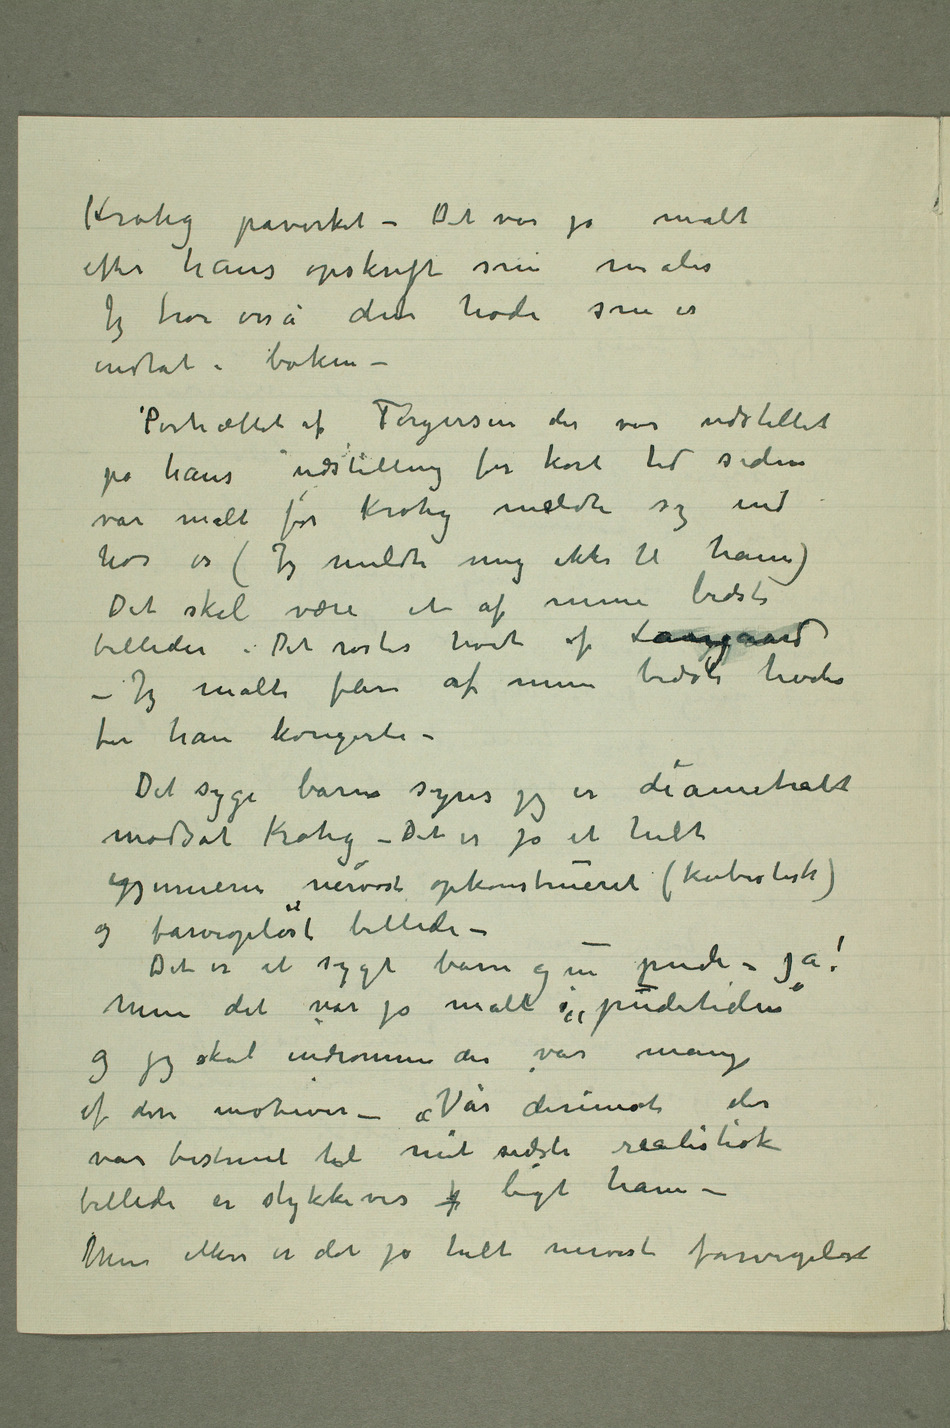 Krohg påvirket – Det var jo malt
efter hans opskrift som males
Jeg tror også det hode som er
indtat i boken –
Portrættet af Torgersen der var udstillet
på hans udstilling for kort tid siden
var malt før Krohg meldte sig ind
hos os (Jeg meldte mig ikke til ham)
Det skal være et af mine bedste
billeder. Det rostes høit af Langaard
– Jeg malte flere af mine bedste hoder
før han korigerte –
Det syge barn synes jeg er diametralt
modsat Krohg – Det er jo et helt
igjennem nervøst opkonstrueret (kubistisk)
og farveopløst billede –
Det er et sygt barn og en pude – ja!
Men det var jo malt i „pudetiden"
og jeg skal indrømme der var mange
af den motiver – „Vår derimot der
var bestemt til mit sidste realistisk
billede er stykkevis ligt ham –
Men ellers er det jo helt nervøst farveopløst